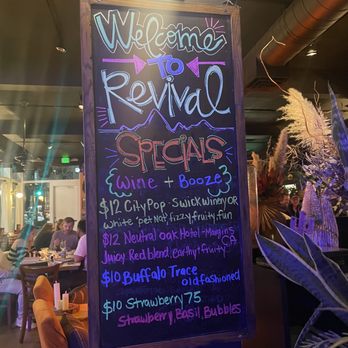 Welcome
To
Revival
SPECIALS
Wine + Booze
$12 City Pop - Swick Winery OR
White "pet Nat", fizzy, fruity, fun
$12 Neutral Oak Hotel - Margins CA
Juicy Red blend, earthy + fruity
$10 Buffalo Trace
old fashioned
$10 Strawberry 75
Strawberry, Basil, Bubbles